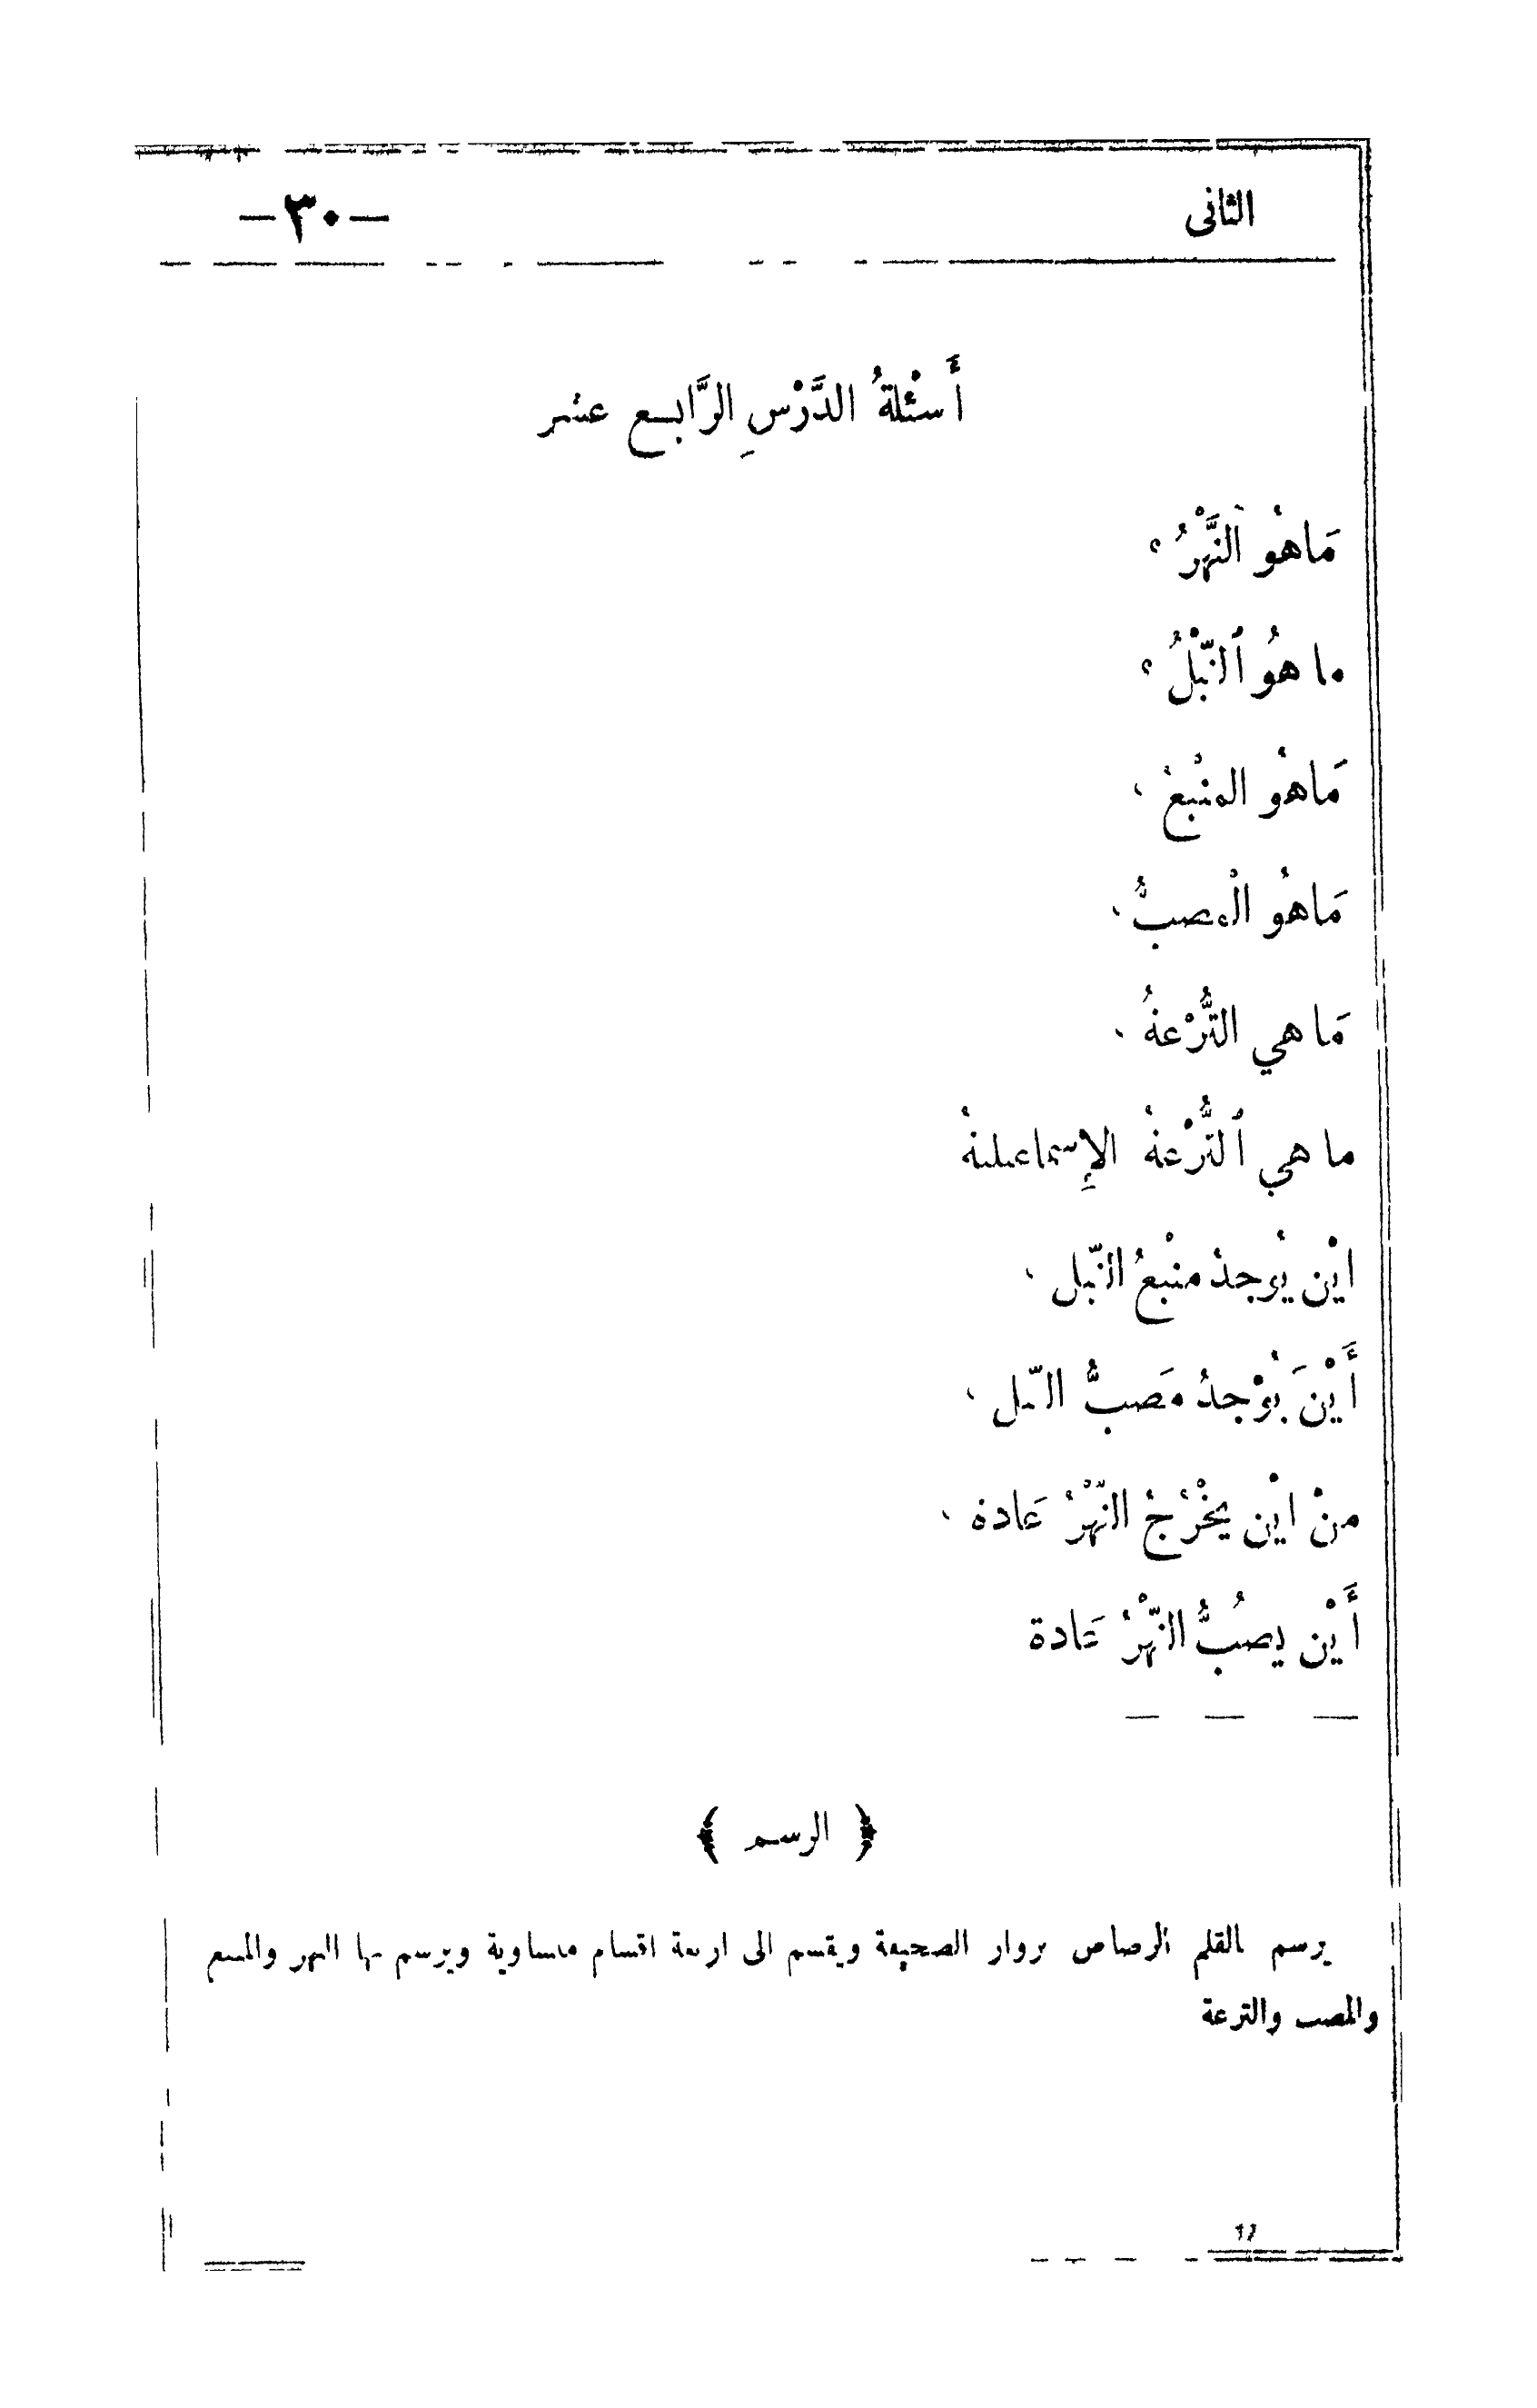 الثانى
—٣٠—
أَسْئِلَةُ الدَّرْسِ الرَّابع عشر
مَاهُو اَلنَّهْرُ ؟
ما هُو ٱلنّيْلُ ؟
مَاهُو المنْبعُ ؟
مَاهُو الْمصبُّ ؟
مَا هي التُّرْعةُ ؟
ما هي ٱلتُّرْعةُ الإِسماعيليةُ
ايْن يُوجدُ منْبعُ النّيل ؟
أَيْنَ يُوْجدُ مَصبُّ النّيل ؟
منْ ايْن يخْرُجُ النّهْرُ عَادة ؟
أَيْن يصُبُّ النّهْرُ عَادة
﴿ الرسم ﴾
يرسم بالقلم الرصاص برواز الصحيفة ويقسم الى اربعة اقسام متساوية ويرسم بها النهر والمنبع
والمصب والترعة